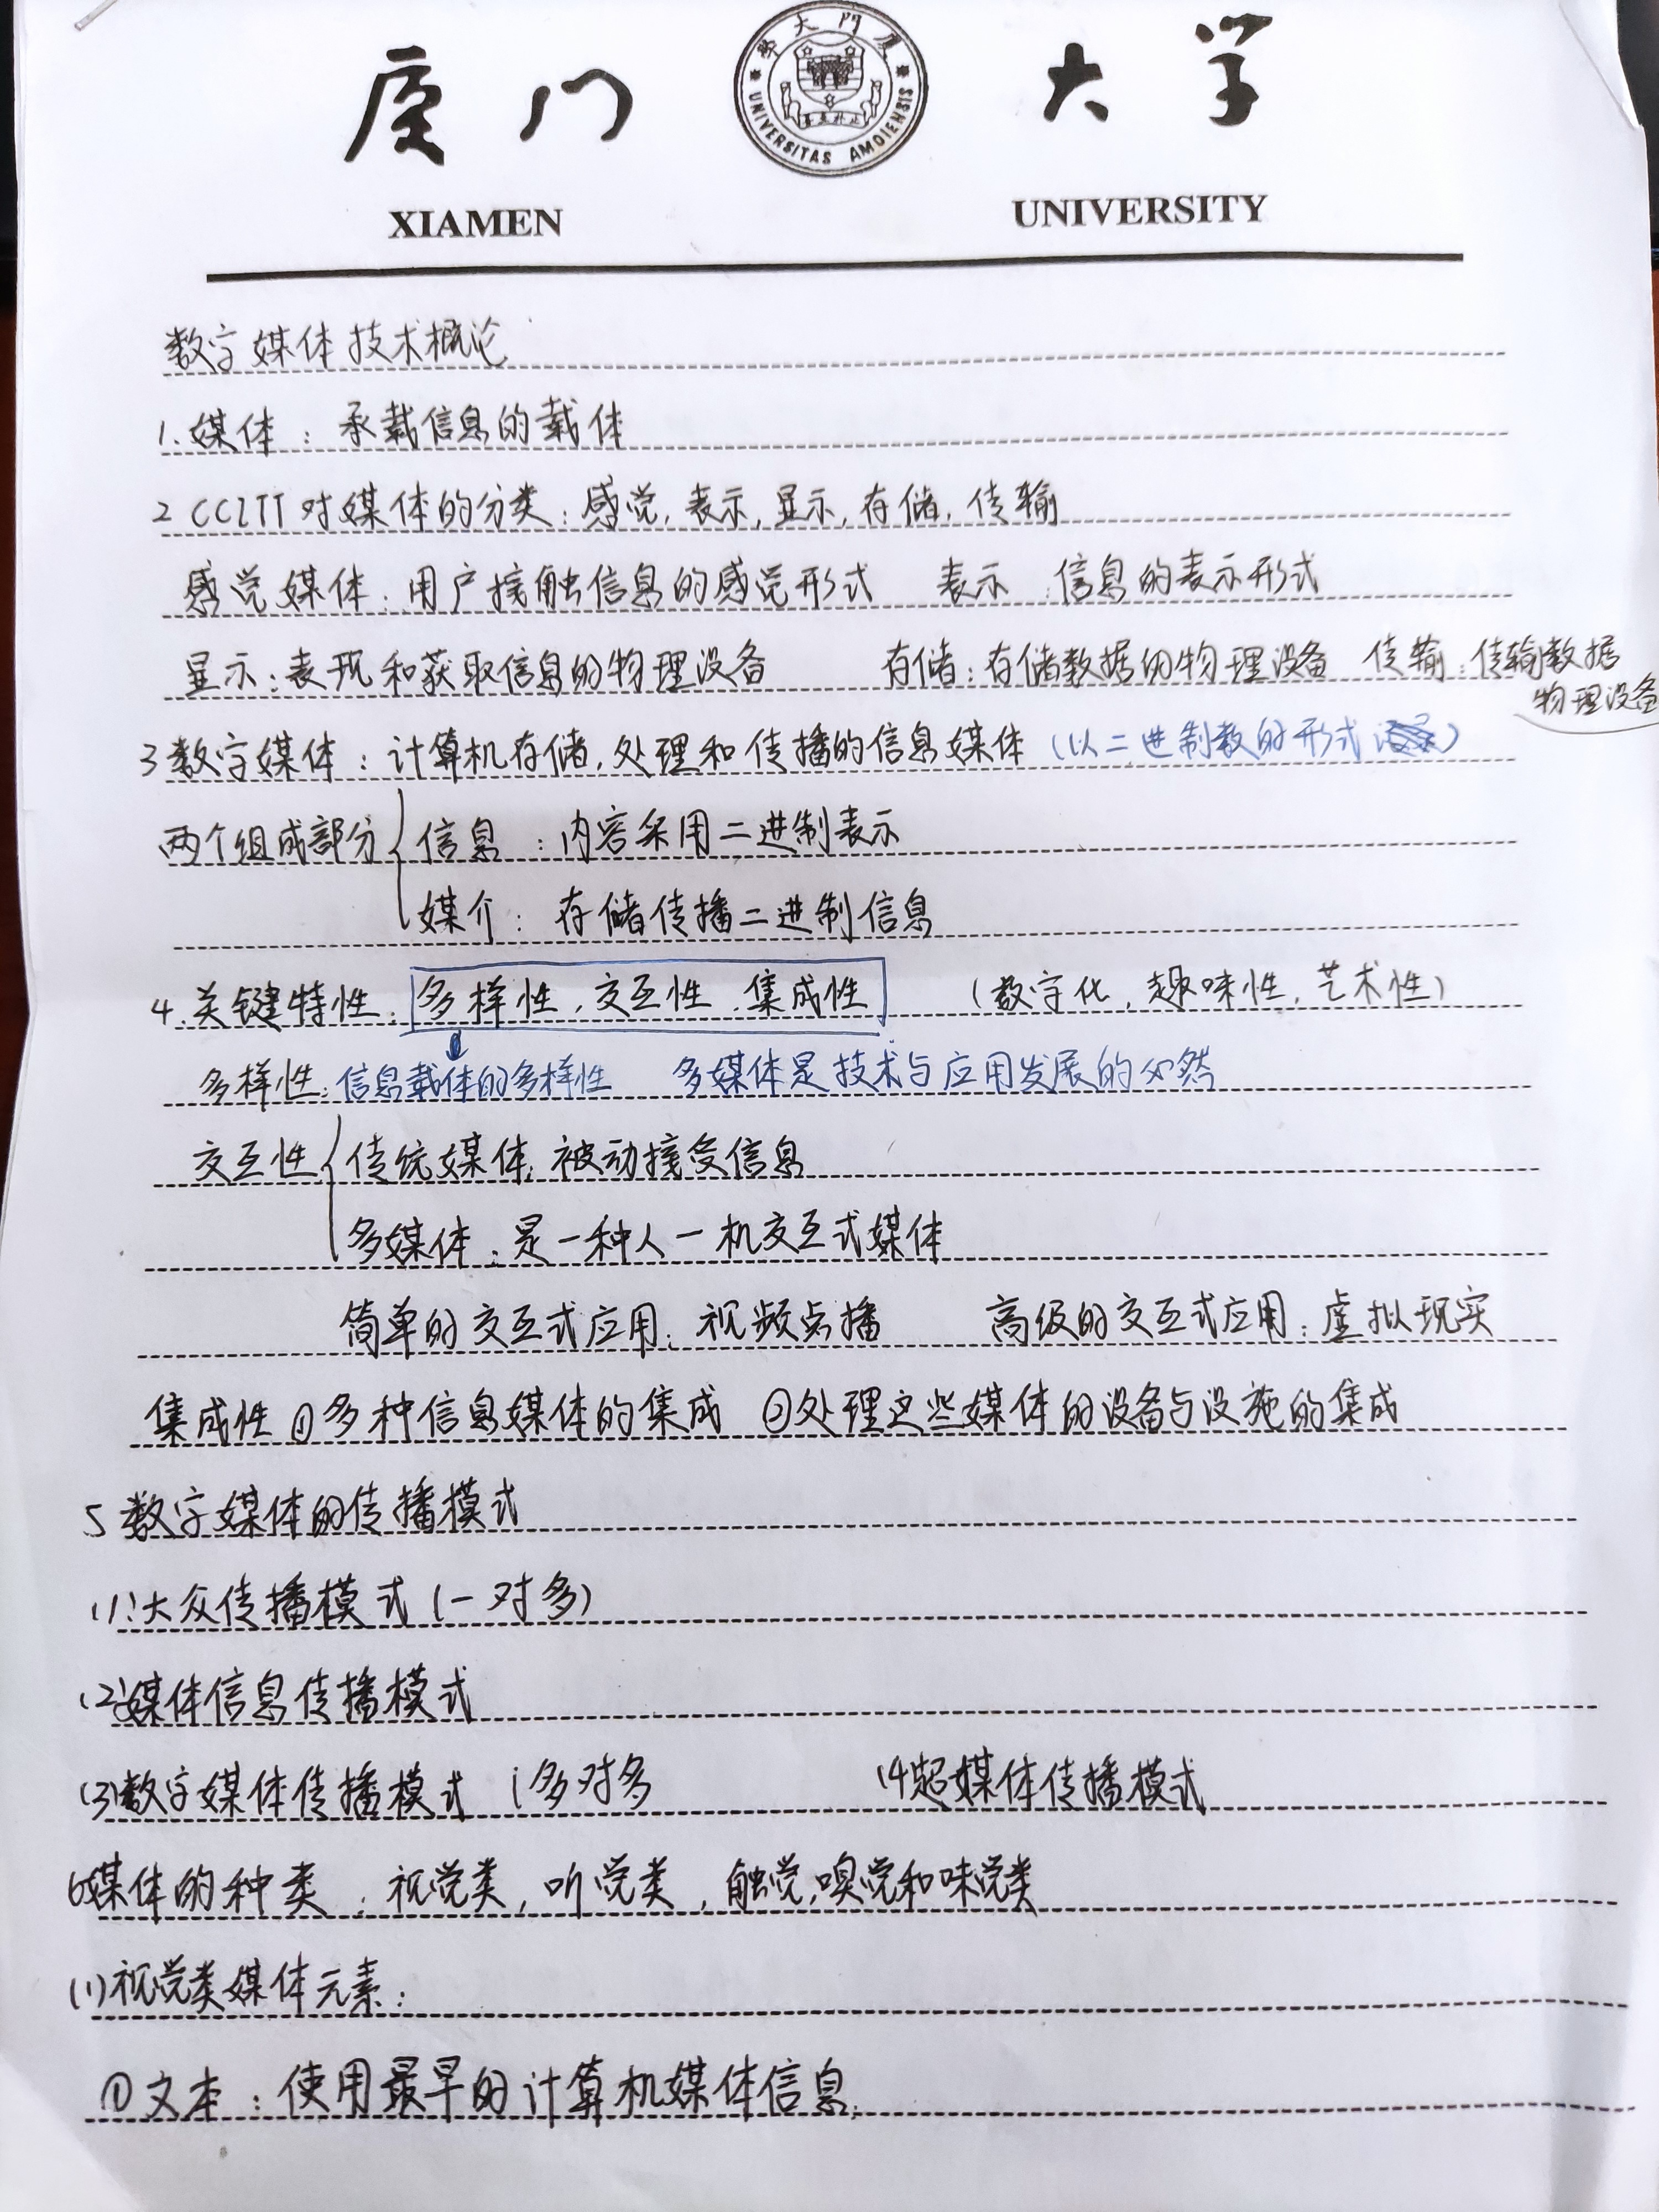 厦门大学
學大門厦
UNIVERSITAS AMOIENSIS
XIAMEN UNIVERSITY
数字媒体技术概论
1.媒体：承载信息的载体
2 CCITT对媒体的分类：感觉,表示,显示,存储,传输
感觉媒体：用户接触信息的感觉形式 表示：信息的表示形式
显示：表现和获取信息的物理设备 存储：存储数据的物理设备 传输：传输数据
物理设备
3数字媒体：计算机存储,处理和传播的信息媒体（以二进制数的形式）
两个组成部分{信息：内容采用二进制表示
媒介：存储传播二进制信息
4.关键特性：多样性,交互性,集成性 （数字化,趣味性,艺术性）
多样性：信息载体的多样性 多媒体是技术与应用发展的必然
交互性{传统媒体：被动接受信息
多媒体：是一种人一机交互式媒体
简单的交互式应用：视频点播 高级的交互式应用：虚拟现实
集成性①多种信息媒体的集成 ②处理这些媒体的设备与设施的集成
5数字媒体的传播模式
(1)大众传播模式(一对多)
(2)媒体信息传播模式
(3)数字媒体传播模式(多对多 (4超媒体传播模式
6媒体的种类：视觉类,听觉类,触觉,嗅觉和味觉类
(1)视觉类媒体元素：
①文本：使用最早的计算机媒体信息.